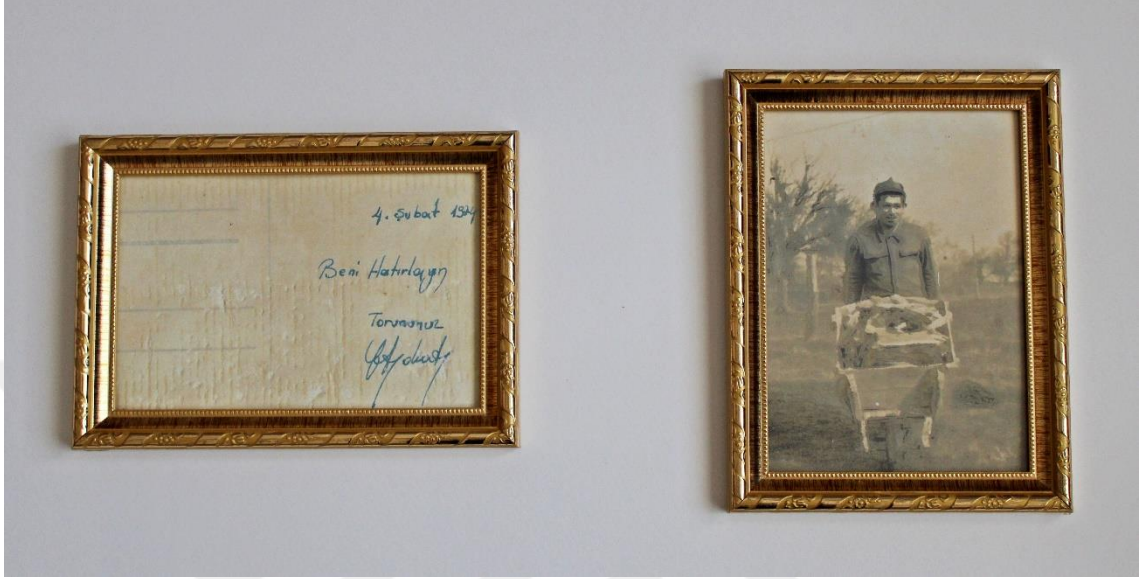 4. Şubat
Beni Hatırlayın
Torununuz